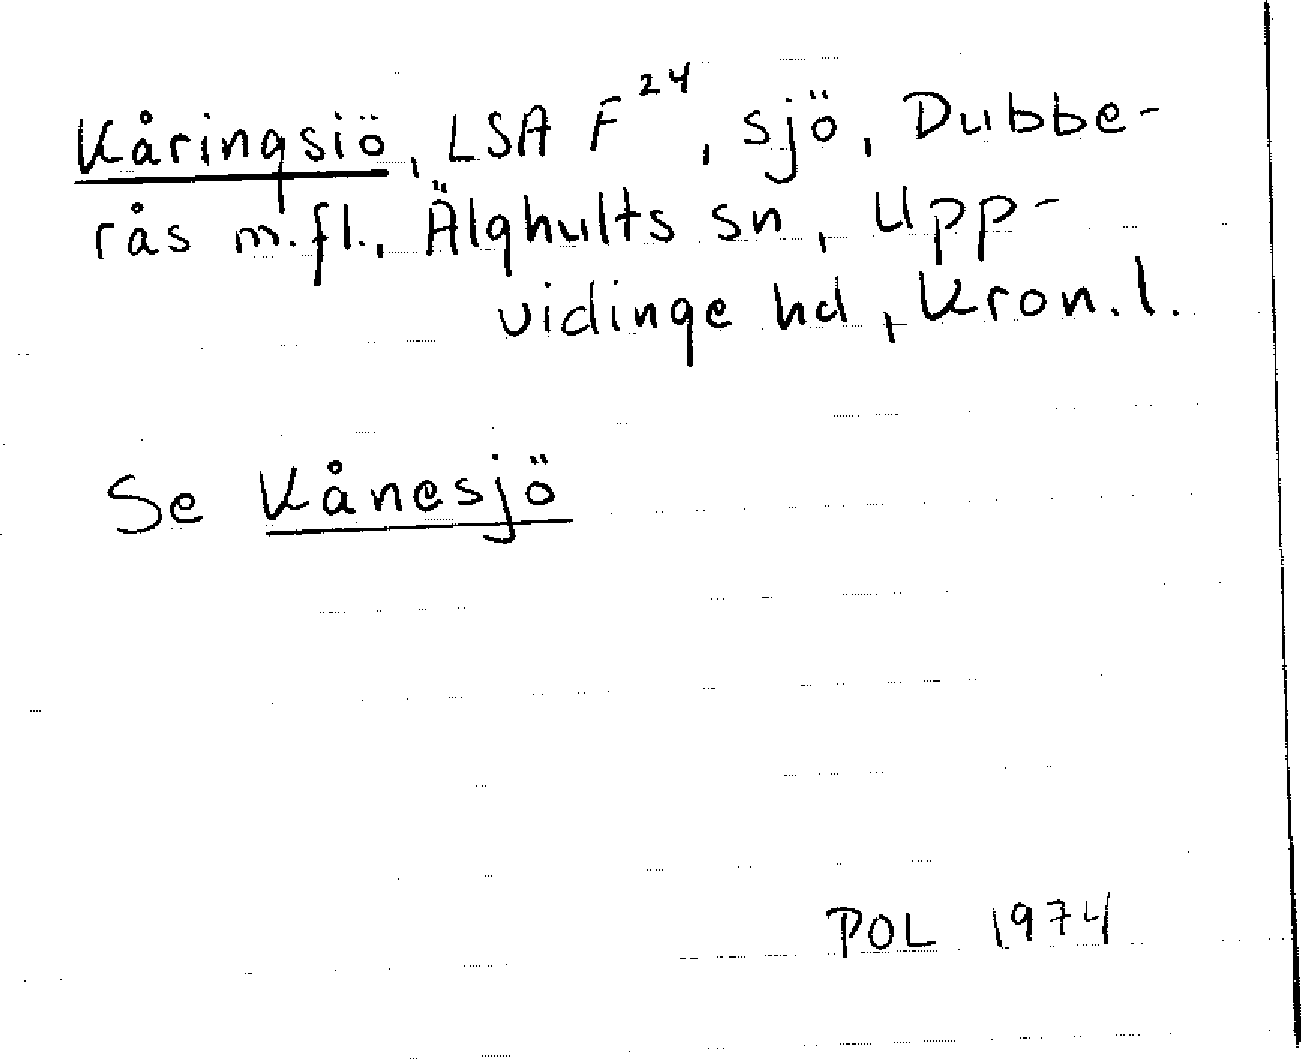 Kåringsiö, LSA F²⁴, sjö, Dubbe-
rås m.fl., Älghults sn, Upp-
vidinge hd, Kron.l.
Se Kånesjö
POL 1974